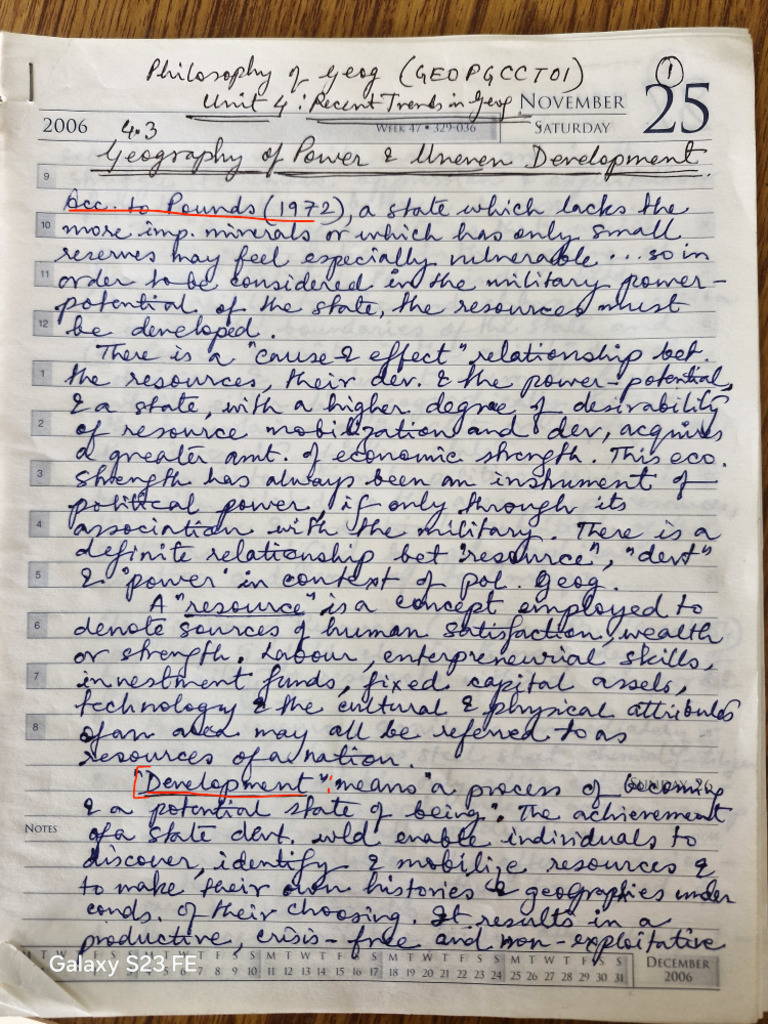 Philosophy of Geog (GEOPGCCT01)
1
Unit 4 : Recent Trends in Geog
NOVEMBER
25
2006
4.3
WEEK 47 • 329-036
SATURDAY
Geography of Power & Uneven Development.
9
Acc. to Pounds (1972), a state which lacks the
10
more imp. minerals or which has only small
reserves may feel especially vulnerable ... so in
11
order to be considered in the military power-
potential of the state, the resources must
12
be developed.
There is a "cause & effect" relationship bet.
1
the resources, their dev. & the power-potential,
& a state, with a higher degree of desirability
2
of resource mobilization and dev, acquires
a greater amt. of economic strength. This eco.
3
strength has always been an instrument of
political power, if only through its
4
association with the military. There is a
definite relationship bet "resource", "devt"
5
& "power" in context of pol. Geog.
A "resource" is a concept employed to
6
denote sources of human satisfaction, wealth
or strength. Labour, enterpreneurial skills,
7
investment funds, fixed capital assets,
technology & the cultural & physical attributes
8
of an area may all be referred to as
resources of a nation.
SUNDAY 26
"Development": means "a process of becoming
& a potential state of being". The achievement
NOTES
of a state devt. wld enable individuals to
discover, identify & mobilize resources &
to make their own histories & geographies under
conds. of their choosing. It results in a
productive, crisis-free and non-exploitative
M T W T F S S M T W T F S S M T W T F S S M T W T F S S
Galaxy S23 FE
7 8 9 10 11 12 13 14 15 16 17 18 19 20 21 22 23 24 25 26 27 28 29 30 31
DECEMBER
2006